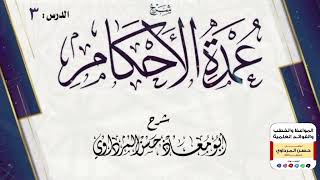 الدرس: ٣
شرح
عمدة الأحكام
شرح
أبو معاذ حسن المرداوي
المواعظ والخطب
والفوائد العلمية
حسن المرداوي